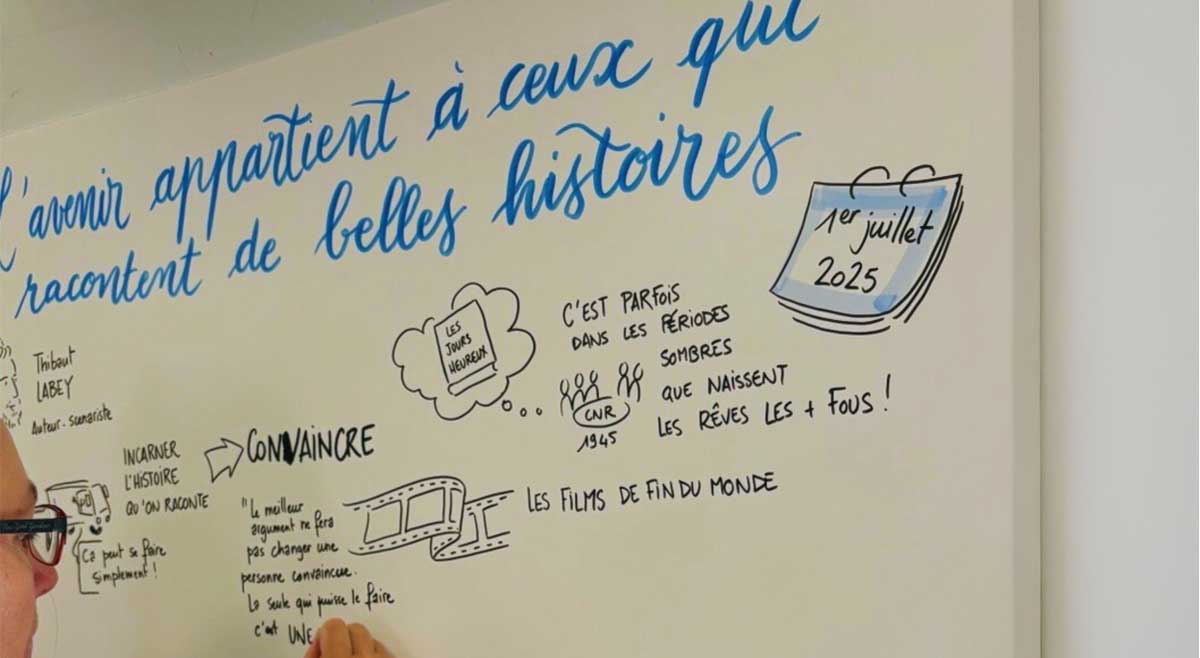 l'avenir appartient à ceux qui
racontent de belles histoires
1er juillet
2025
Thibaut
LABEY
Auteur-scénariste
INCARNER
L'HISTOIRE
QU'ON RACONTE
Ça peut se faire
simplement !
CONVAINCRE
"Le meilleur
argument ne fera
pas changer une
personne convaincue.
La seule qui puisse le faire
c'est UNE
LES
JOURS
HEUREUX
C'EST PARFOIS
DANS LES PÉRIODES
SOMBRES
QUE NAISSENT
LES RÊVES LES + FOUS !
CNR
1945
LES FILMS DE FIN DU MONDE